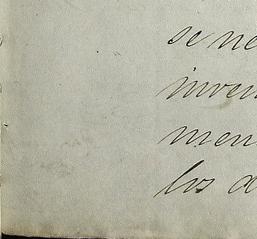 se ne
inven
men
los d